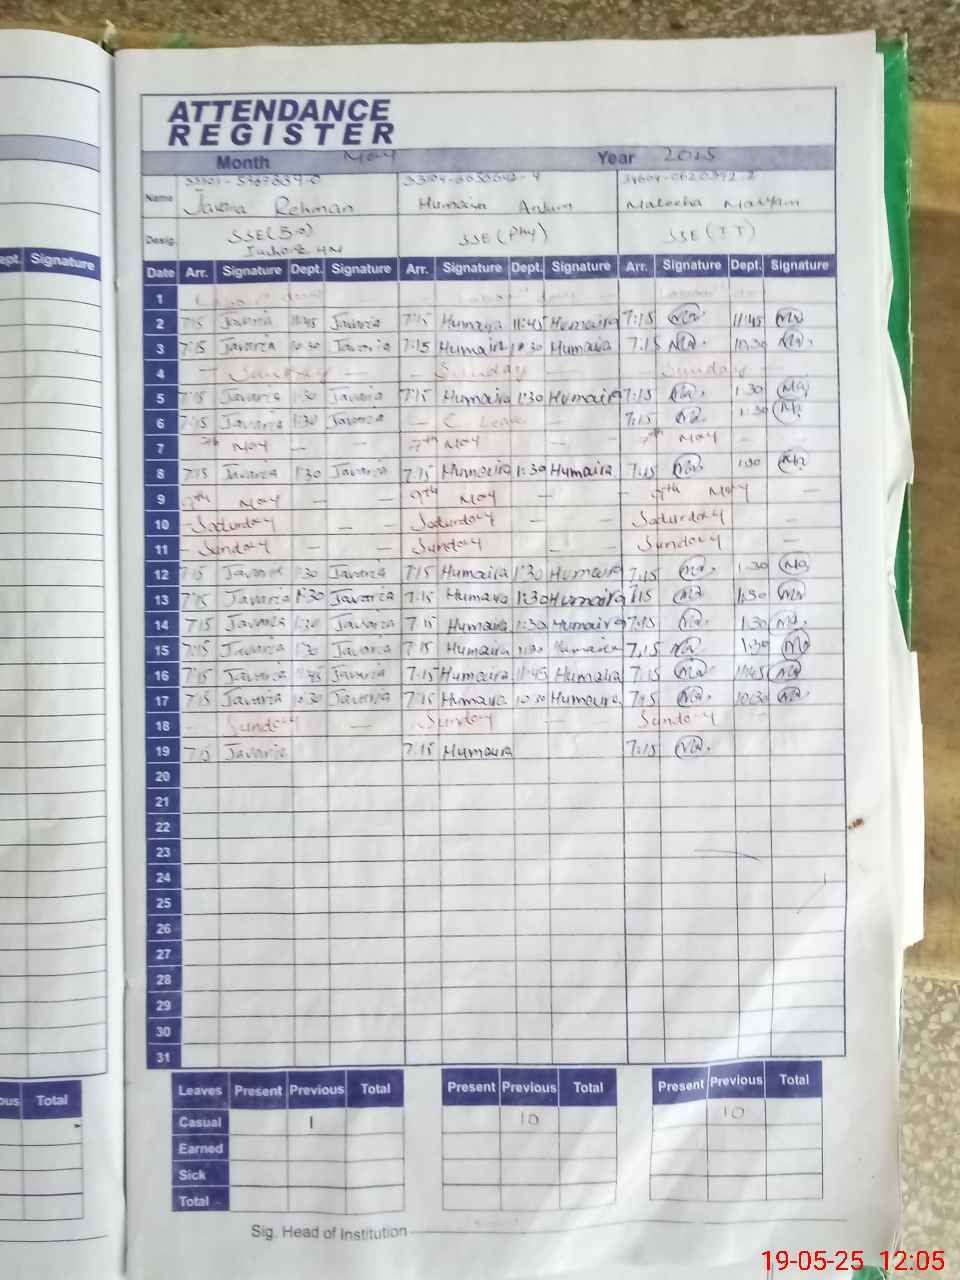 ATTENDANCE
REGISTER
Month May Year 2025
Name Javeria Rehman Humaira Anjum Maleeha Maryam
Desig. SSE(Bio) SSE(Phy) SSE(IT)
ept. Signature
Date Arr. Signature Dept. Signature Arr. Signature Dept. Signature Arr. Signature Dept. Signature
1
2 7:15 Javaria 11:45 Javaria 7:15 Humaira 11:45 Humaira 7:15 Ma 11:45 Ma
3 7:15 Javaria 10:30 Javaria 7:15 Humaira 10:30 Humaira 7:15 Ma. 10:30 Ma.
4 — Sunday — — Sunday — — Sunday —
5 7:15 Javaria 1:30 Javaria 7:15 Humaira 1:30 Humaira 7:15 Ma. 1:30 Ma.
6 7:15 Javaria 1:30 Javaria — C. Leave — 7:15 Ma. 1:30 Ma.
7 7th May — — 7th May — — 7th May — —
8 7:15 Javaria 1:30 Javaria 7:15 Humaira 1:30 Humaira 7:15 Ma. 1:30 Ma
9 9th May — — 9th May — — 9th May —
10 - Saturday — — Saturday — — Saturday —
11 - Sunday — — Sunday — — Sunday —
12 7:15 Javaria 1:30 Javaria 7:15 Humaira 1:30 Humaira 7:15 Ma. 1:30 Ma
13 7:15 Javaria 1:30 Javaria 7:15 Humaira 1:30 Humaira 7:15 Ma 1:30 Ma
14 7:15 Javaria 1:30 Javaria 7:15 Humaira 1:30 Humaira 7:15 Ma. 1:30 Ma.
15 7:15 Javaria 1:30 Javaria 7:15 Humaira 1:30 Humaira 7:15 Ma. 1:30 Ma
16 7:15 Javaria 11:45 Javaria 7:15 Humaira 11:45 Humaira 7:15 Ma. 11:45 Ma
17 7:15 Javaria 10:30 Javaria 7:15 Humaira 10:30 Humaira 7:15 Ma. 10:30 Ma.
18 - Sunday — - Sunday — Sunday
19 7:15 Javaria 7:15 Humaira 7:15 Ma.
20
21
22
23
24
25
26
27
28
29
30
31
ous Total
Leaves Present Previous Total Present Previous Total Present Previous Total
Casual 1 10 10
Earned
Sick
Total
Sig. Head of Institution
19-05-25 12:05